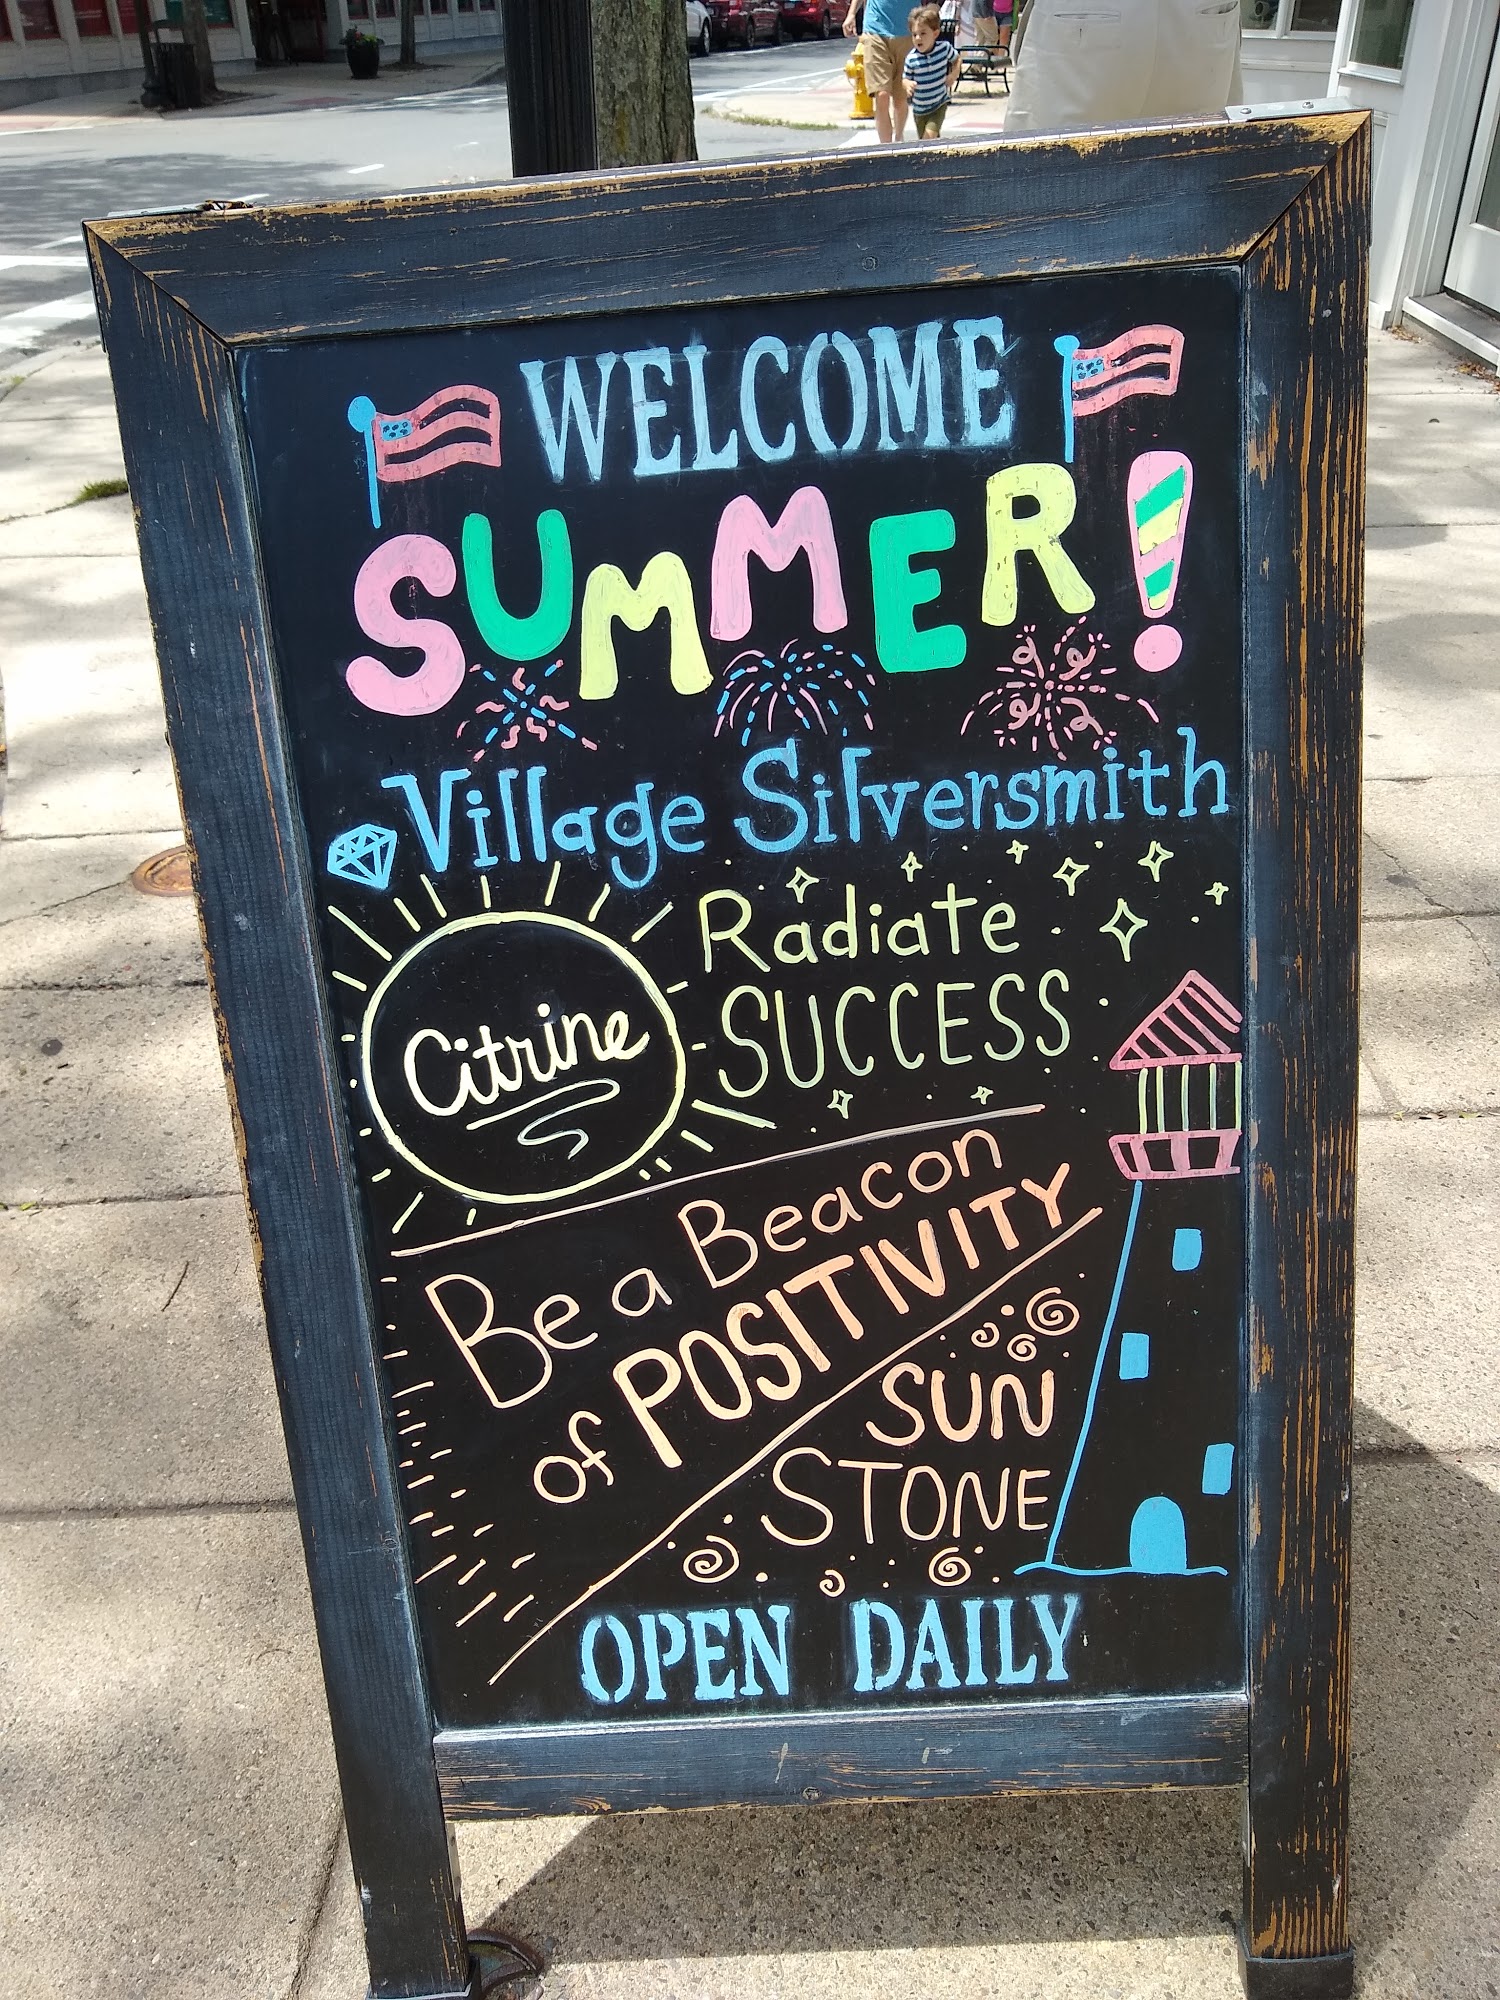 WELCOME
SUMMER!
Village Silversmith
Citrine
Radiate
SUCCESS
Be a Beacon
of POSITIVITY
SUN
STONE
OPEN DAILY